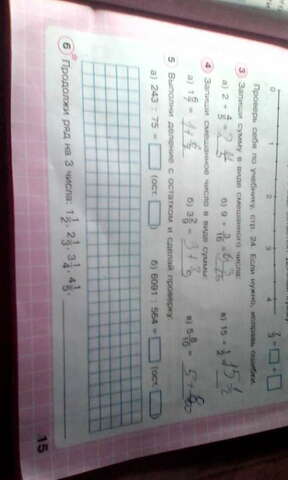 0 1 2 3 4
7/3 = □ + □
Проверь себя по учебнику, стр. 24. Если нужно, исправь ошибки.
3 Запиши сумму в виде смешанного числа:
а) 2 + 4/5 = 2 4/5 б) 9 + в) 15 +
4 Запиши смешанное число в виде суммы:
а) 1 б) 3 2/9 = 3 + в) 5 8/10 = 5 +
5 Выполни деление с остатком и сделай проверку:
а) 243 : 75 = □ (ост. □) б) 6091 : 564 = □ (ост. □)
6 Продолжи ряд на 3 числа: 1 1/2, 2 1/3, 3 1/4, 4 1/5,
15